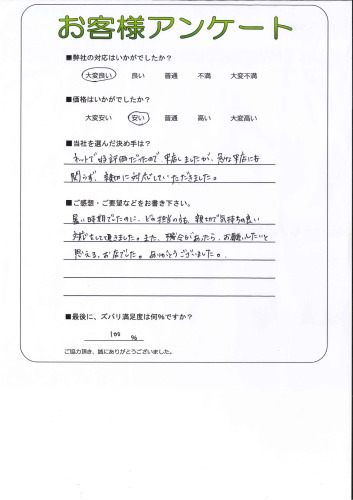 お客様アンケート
■弊社の対応はいかがでしたか？
大変良い 良い 普通 不満 大変不満
■価格はいかがでしたか？
大変安い 安い 普通 高い 大変高い
■当社を選んだ決め手は？
ネットで好評価だったので来店しましたが、急な来店にも
関らず、親切に対応していただきました。
■ご感想・ご要望などをお書き下さい。
暑い時期でしたのに、どの担当の方も、親切で気持ちの良い
対応をして頂きました。また、機会があったら、お願いしたいと
思える、お店でした。ありがとうございました。
■最後に、ズバリ満足度は何％ですか？
100 %
ご協力頂き、誠にありがとうございました。